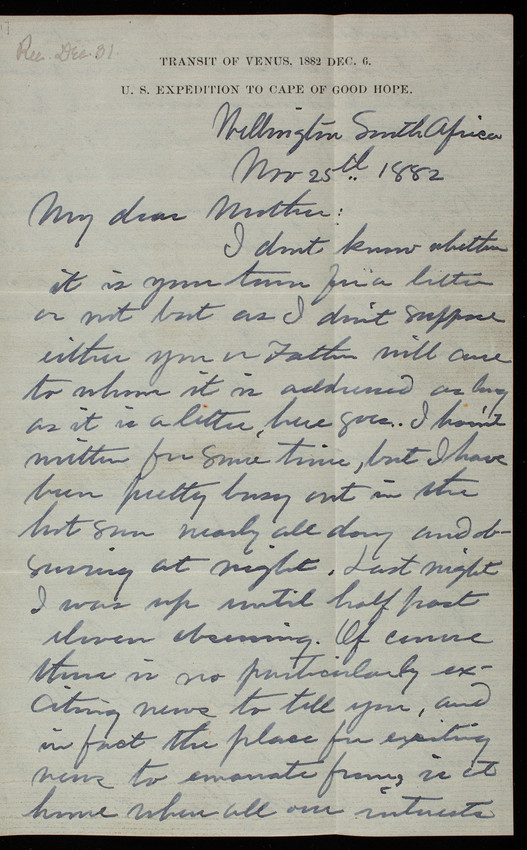 Rec. Dec. 31.
TRANSIT OF VENUS, 1882 DEC. 6.
U. S. EXPEDITION TO CAPE OF GOOD HOPE.
Wellington South Africa
Nov 25th 1882
My dear Mother:
I don't know whether
it is your turn for a letter
or not but as I don't suppose
either you or Father will care
to whom it is addressed as long
as it is a letter, here goes. I haven't
written for some time, but I have
been pretty busy out in the
hot sun nearly all day and ob-
serving at night. Last night
I was up until half past
eleven observing. Of course
there is no particularly ex-
citing news to tell you, and
in fact the place for exciting
news to emanate from, is at
home where all our interests